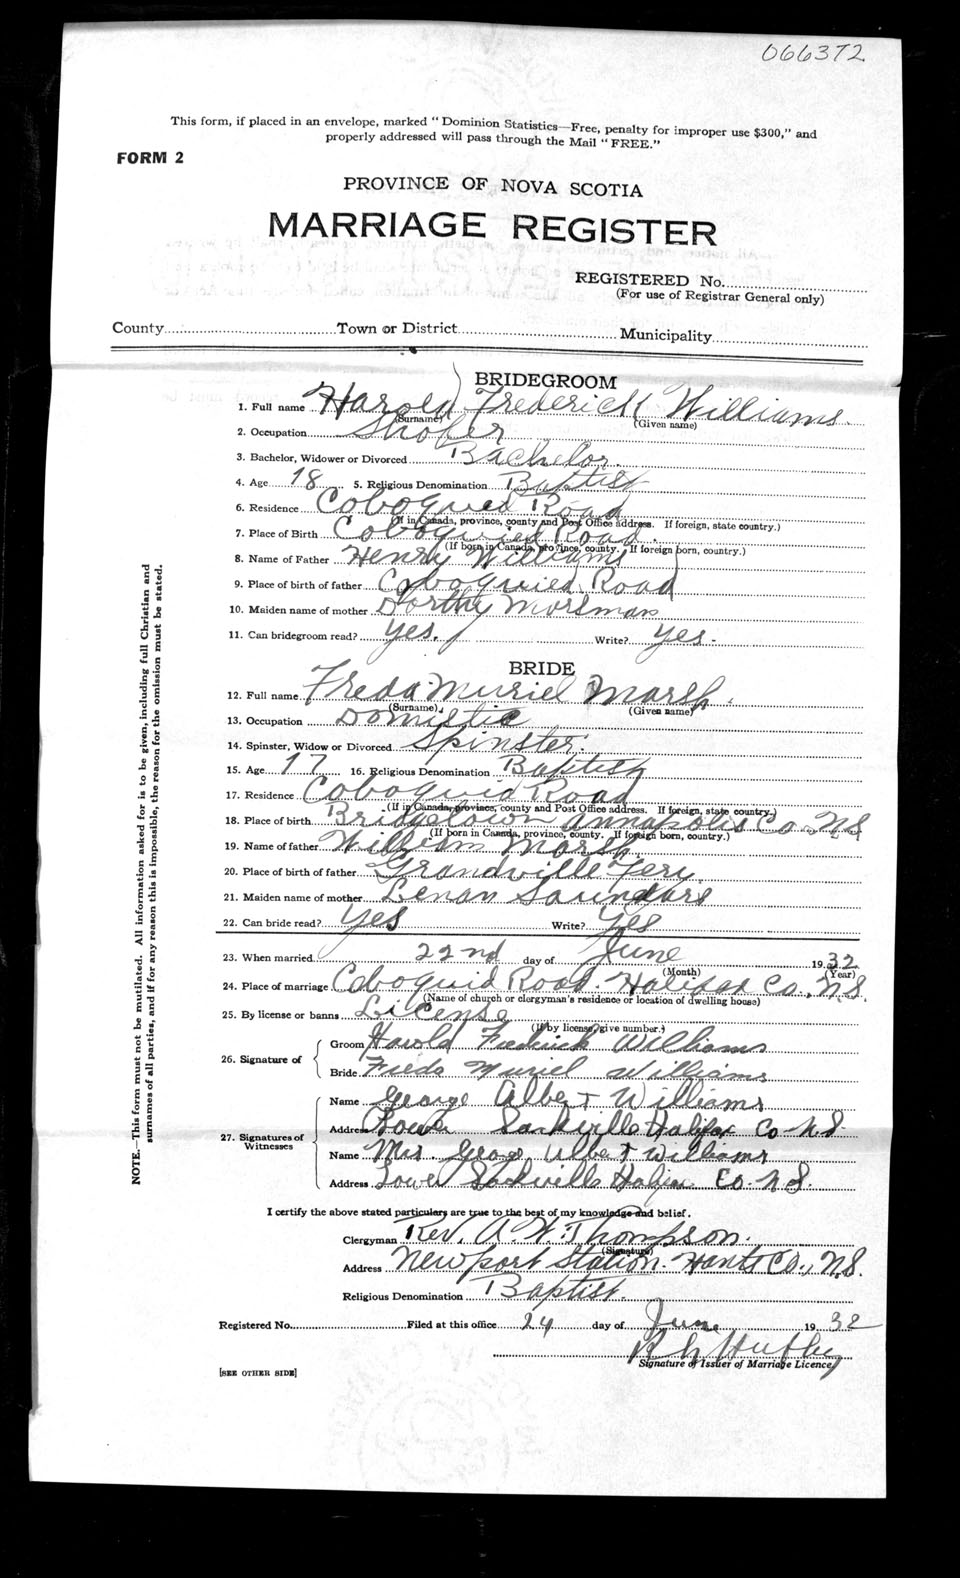 066372
This form, if placed in an envelope, marked "Dominion Statistics—Free, penalty for improper use $300," and
properly addressed will pass through the Mail "FREE."
FORM 2
PROVINCE OF NOVA SCOTIA
MARRIAGE REGISTER
REGISTERED No.
(For use of Registrar General only)
County Town or District Municipality
BRIDEGROOM
1. Full name Harold Frederick Williams
(Surname) (Given name)
2. Occupation Shofer
3. Bachelor, Widower or Divorced Bachelor.
4. Age 18 5. Religious Denomination Baptist
6. Residence Coboquied Road
(If in Canada, province, county and Post Office address. If foreign, state country.)
7. Place of Birth Coboquied Road.
(If born in Canada, province, county. If foreign born, country.)
8. Name of Father Henry Williams
9. Place of birth of father Coboquied Road
10. Maiden name of mother Dorthy Morsman
11. Can bridegroom read? yes. Write? yes.
BRIDE
12. Full name Freda Muriel Marsh.
(Surname) (Given name)
13. Occupation Domistic
14. Spinster, Widow or Divorced Spinster.
15. Age 17 16. Religious Denomination Baptist
17. Residence Coboquid Road
(If in Canada, province, county and Post Office address. If foreign, state country.)
18. Place of birth Bridgetown Annapolis Co. N.S
(If born in Canada, province, county. If foreign born, country.)
19. Name of father William Marsh.
20. Place of birth of father Grandville Fery
21. Maiden name of mother Lenan Saunders
22. Can bride read? yes Write? yes
23. When married 22nd day of June 1932
(Month) (Year)
24. Place of marriage Coboquid Road. Halifax Co., N.S.
(Name of church or clergyman's residence or location of dwelling house)
25. By license or banns License
(If by license, give number.)
26. Signature of
Groom Harold Frederick Williams
Bride Freda Muriel Williams
27. Signatures of Witnesses
Name George Albert Williams
Address Lower Sackville Halifax Co N.S.
Name Mrs. George Albert Williams
Address Lower Sackville Halifax Co. N.S.
I certify the above stated particulars are true to the best of my knowledge and belief.
Clergyman Rev. A. W. Thompson.
(Signature)
Address Newport Station. Hants Co., N.S.
Religious Denomination Baptist.
Registered No. Filed at this office 24 day of June 1932
Signature of Issuer of Marriage Licence
[SEE OTHER SIDE]
NOTE.—This form must not be mutilated. All information asked for is to be given, including full Christian and
surnames of all parties, and if for any reason this is impossible, the reason for the omission must be stated.